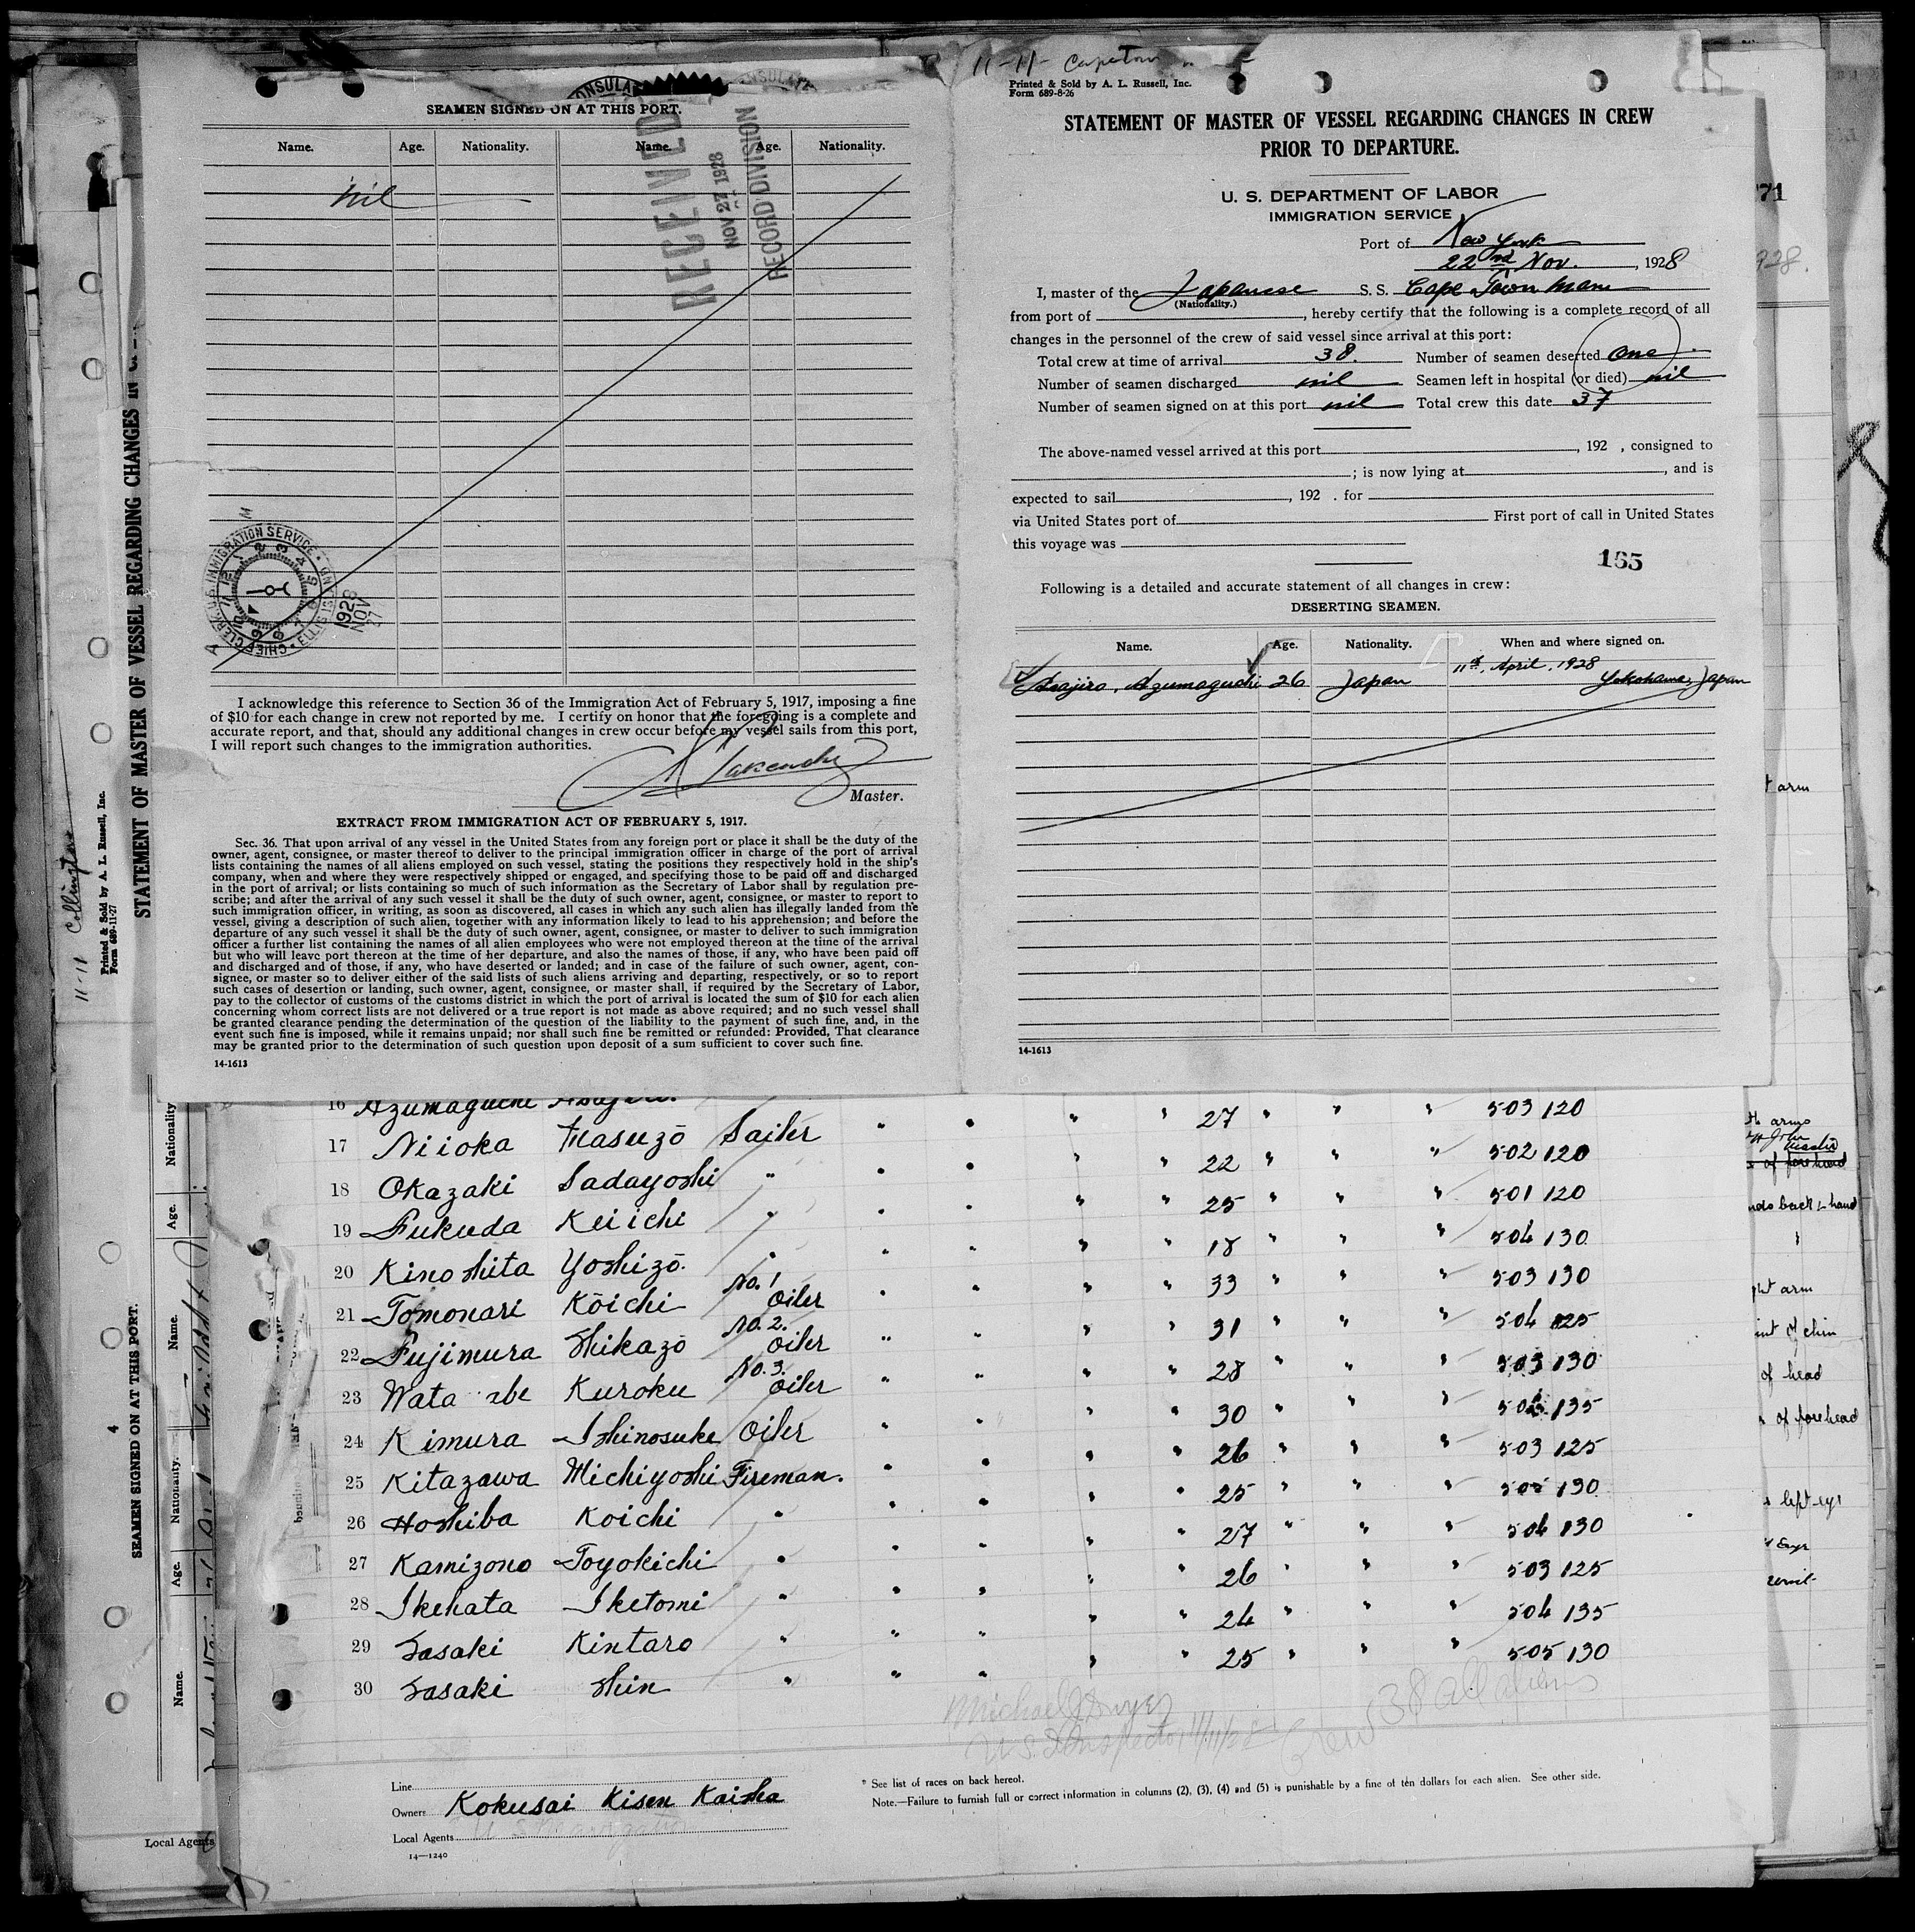 SEAMEN SIGNED ON AT THIS PORT.
Name. Age. Nationality. Name. Age. Nationality.
nil
RECEIVED
NOV 27 1928
RECORD DIVISION
CHIEF CLERK U.S. IMMIGRATION SERVICE
ELLIS ISLAND
1928
NOV
27
I acknowledge this reference to Section 36 of the Immigration Act of February 5, 1917, imposing a fine
of $10 for each change in crew not reported by me. I certify on honor that the foregoing is a complete and
accurate report, and that, should any additional changes in crew occur before my vessel sails from this port,
I will report such changes to the immigration authorities.
Master.
EXTRACT FROM IMMIGRATION ACT OF FEBRUARY 5, 1917.
Sec. 36. That upon arrival of any vessel in the United States from any foreign port or place it shall be the duty of the
owner, agent, consignee, or master thereof to deliver to the principal immigration officer in charge of the port of arrival
lists containing the names of all aliens employed on such vessel, stating the positions they respectively hold in the ship's
company, when and where they were respectively shipped or engaged, and specifying those to be paid off and discharged
in the port of arrival; or lists containing so much of such information as the Secretary of Labor shall by regulation pre-
scribe; and after the arrival of any such vessel it shall be the duty of such owner, agent, consignee, or master to report to
such immigration officer, in writing, as soon as discovered, all cases in which any such alien has illegally landed from the
vessel, giving a description of such alien, together with any information likely to lead to his apprehension; and before the
departure of any such vessel it shall be the duty of such owner, agent, consignee, or master to deliver to such immigration
officer a further list containing the names of all alien employees who were not employed thereon at the time of the arrival
but who will leave port thereon at the time of her departure, and also the names of those, if any, who have been paid off
and discharged and of those, if any, who have deserted or landed; and in case of the failure of such owner, agent, con-
signee, or master so to deliver either of the said lists of such aliens arriving and departing, respectively, or so to report
such cases of desertion or landing, such owner, agent, consignee, or master shall, if required by the Secretary of Labor,
pay to the collector of customs of the customs district in which the port of arrival is located the sum of $10 for each alien
concerning whom correct lists are not delivered or a true report is not made as above required; and no such vessel shall
be granted clearance pending the determination of the question of the liability to the payment of such fine, and, in the
event such fine is imposed, while it remains unpaid; nor shall such fine be remitted or refunded: Provided, That clearance
may be granted prior to the determination of such question upon deposit of a sum sufficient to cover such fine.
14-1613
11-11- Capetown
Printed & Sold by A. L. Russell, Inc.
Form 689-8-26
STATEMENT OF MASTER OF VESSEL REGARDING CHANGES IN CREW
PRIOR TO DEPARTURE.
U. S. DEPARTMENT OF LABOR
IMMIGRATION SERVICE
Port of New York
22nd Nov., 1928
I, master of the Japanese S. S. Cape Town Maru
(Nationality.)
from port of , hereby certify that the following is a complete record of all
changes in the personnel of the crew of said vessel since arrival at this port:
Total crew at time of arrival 38. Number of seamen deserted One
Number of seamen discharged nil Seamen left in hospital (or died) nil
Number of seamen signed on at this port nil Total crew this date 37
The above-named vessel arrived at this port , 192 , consigned to
; is now lying at , and is
expected to sail , 192 . for
via United States port of First port of call in United States
this voyage was
165
Following is a detailed and accurate statement of all changes in crew:
DESERTING SEAMEN.
Name. Age. Nationality. When and where signed on.
11th, April, 1928
Asajiro, Azumaguchi 26 Japan Yokohama, Japan
14-1613
16 Azumaguchi Asajiro. " " 27 " " " 503 120
17 Niioka Masuzō Sailer " " " " 22 " " " 502 120
18 Okazaki Sadayoshi " " " " " 25 " " " 501 120
19 Fukuda Keiichi " " " " " 18 " " " 504 130
20 Kinoshita Yoshizō. " " " " " 33 " " " 503 130
21 Tomonari Kōichi No. 1 Oiler " " " " 31 " " " 504 125
22 Fujimura Shikazō No. 2. Oiler " " " " 28 " " " 503 130
23 Wata abe Kuroku No. 3. Oiler " " " " 30 " " " 135
24 Kimura Ishinosuke Oiler " " " " 26 " " " 503 125
25 Kitazawa Michiyoshi Fireman. " " " " 25 " " " 505 130
26 Hoshiba Koichi " " " " " 27 " " " 504 130
27 Kamizono Toyokichi " " " " " 26 " " " 503 125
28 Ikehata Iketomi " " " " " 24 " " " 504 135
29 Sasaki Kintaro " " " " " 25 " " " 505 130
30 Sasaki Shin " " "
Michael J Dwyer
U S I Inspector 11/11/28 Crew 38 all aliens
Line
Owners Kokusai Kisen Kaisha
Local Agents
14—1240
* See list of races on back hereof.
Note.—Failure to furnish full or correct information in columns (2), (3), (4) and (5) is punishable by a fine of ten dollars for each alien. See other side.
11-11 Collingtone
Printed & Sold by A. L. Russell, Inc.
Form 689-11-27
STATEMENT OF MASTER OF VESSEL REGARDING CHANGES IN
4
SEAMEN SIGNED ON AT THIS PORT.
Name. Age. Nationality. Name. Age. Nationality
Local Agents
71
928.
t arm
arms
of forehead
back L hand
arm
of chin
of head
of forehead
left eye